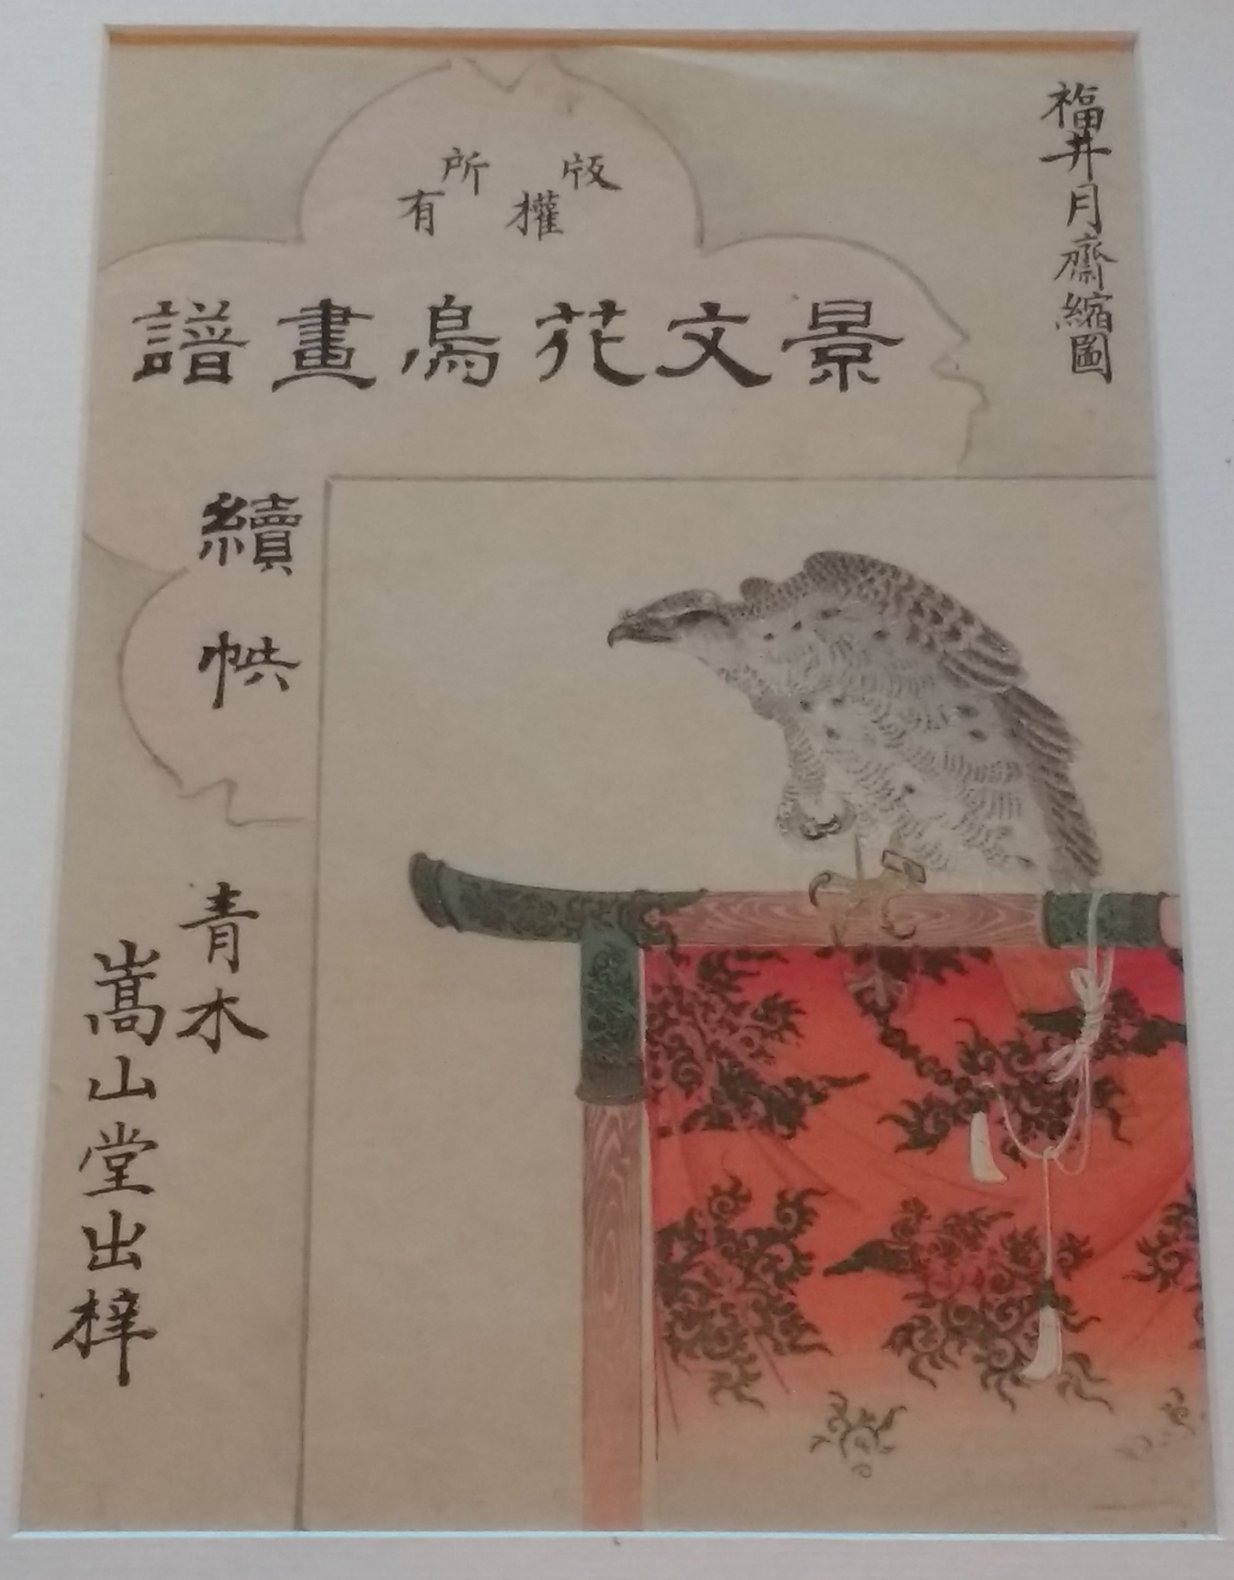 福井月齋縮圖
版權所有
景文花鳥畫譜
續帙
青木
嵩山堂出梓